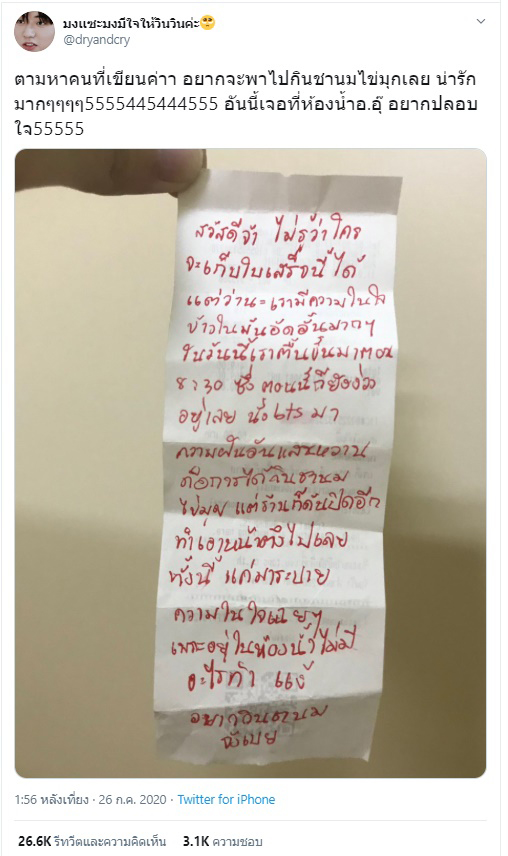 มงแซะมงมีใจให้วินวินค่ะ🥺
@dryandcry
ตามหาคนที่เขียนค่าา อยากจะพาไปกินชานมไข่มุกเลย น่ารัก
มากๆๆๆๆ5555445444555 อันนี้เจอที่ห้องน้ำอ.อุ๊ อยากปลอบ
ใจ55555
สวัสดีจ้า ไม่รู้ว่าใคร
จะเก็บใบเสร็จนี้ได้
แต่ว่านะเรามีความในใจ
ข้างในมันอัดอั้นมากๆ
ในวันนี้เราตื่นขึ้นมาตอน
8:30 ซึ่งตอนนี้ก็ยังง่วง
อยู่เลย นั่ง bts มา
ความฝันอันแสนหวาน
คือการได้กินชานม
ไข่มุก แต่ร้านก็ดันปิดอีก
ทำเอาหน้าตึงไปเลย
ทั้งนี้ แค่มาระบาย
ความในใจเฉยๆ
เพราะอยู่ในห้องน้ำไม่มี
อะไรทำ แงง้
อยากกินชานม
จังเบย
1:56 หลังเที่ยง · 26 ก.ค. 2020 · Twitter for iPhone
26.6K รีทวีตและความคิดเห็น 3.1K ความชอบ